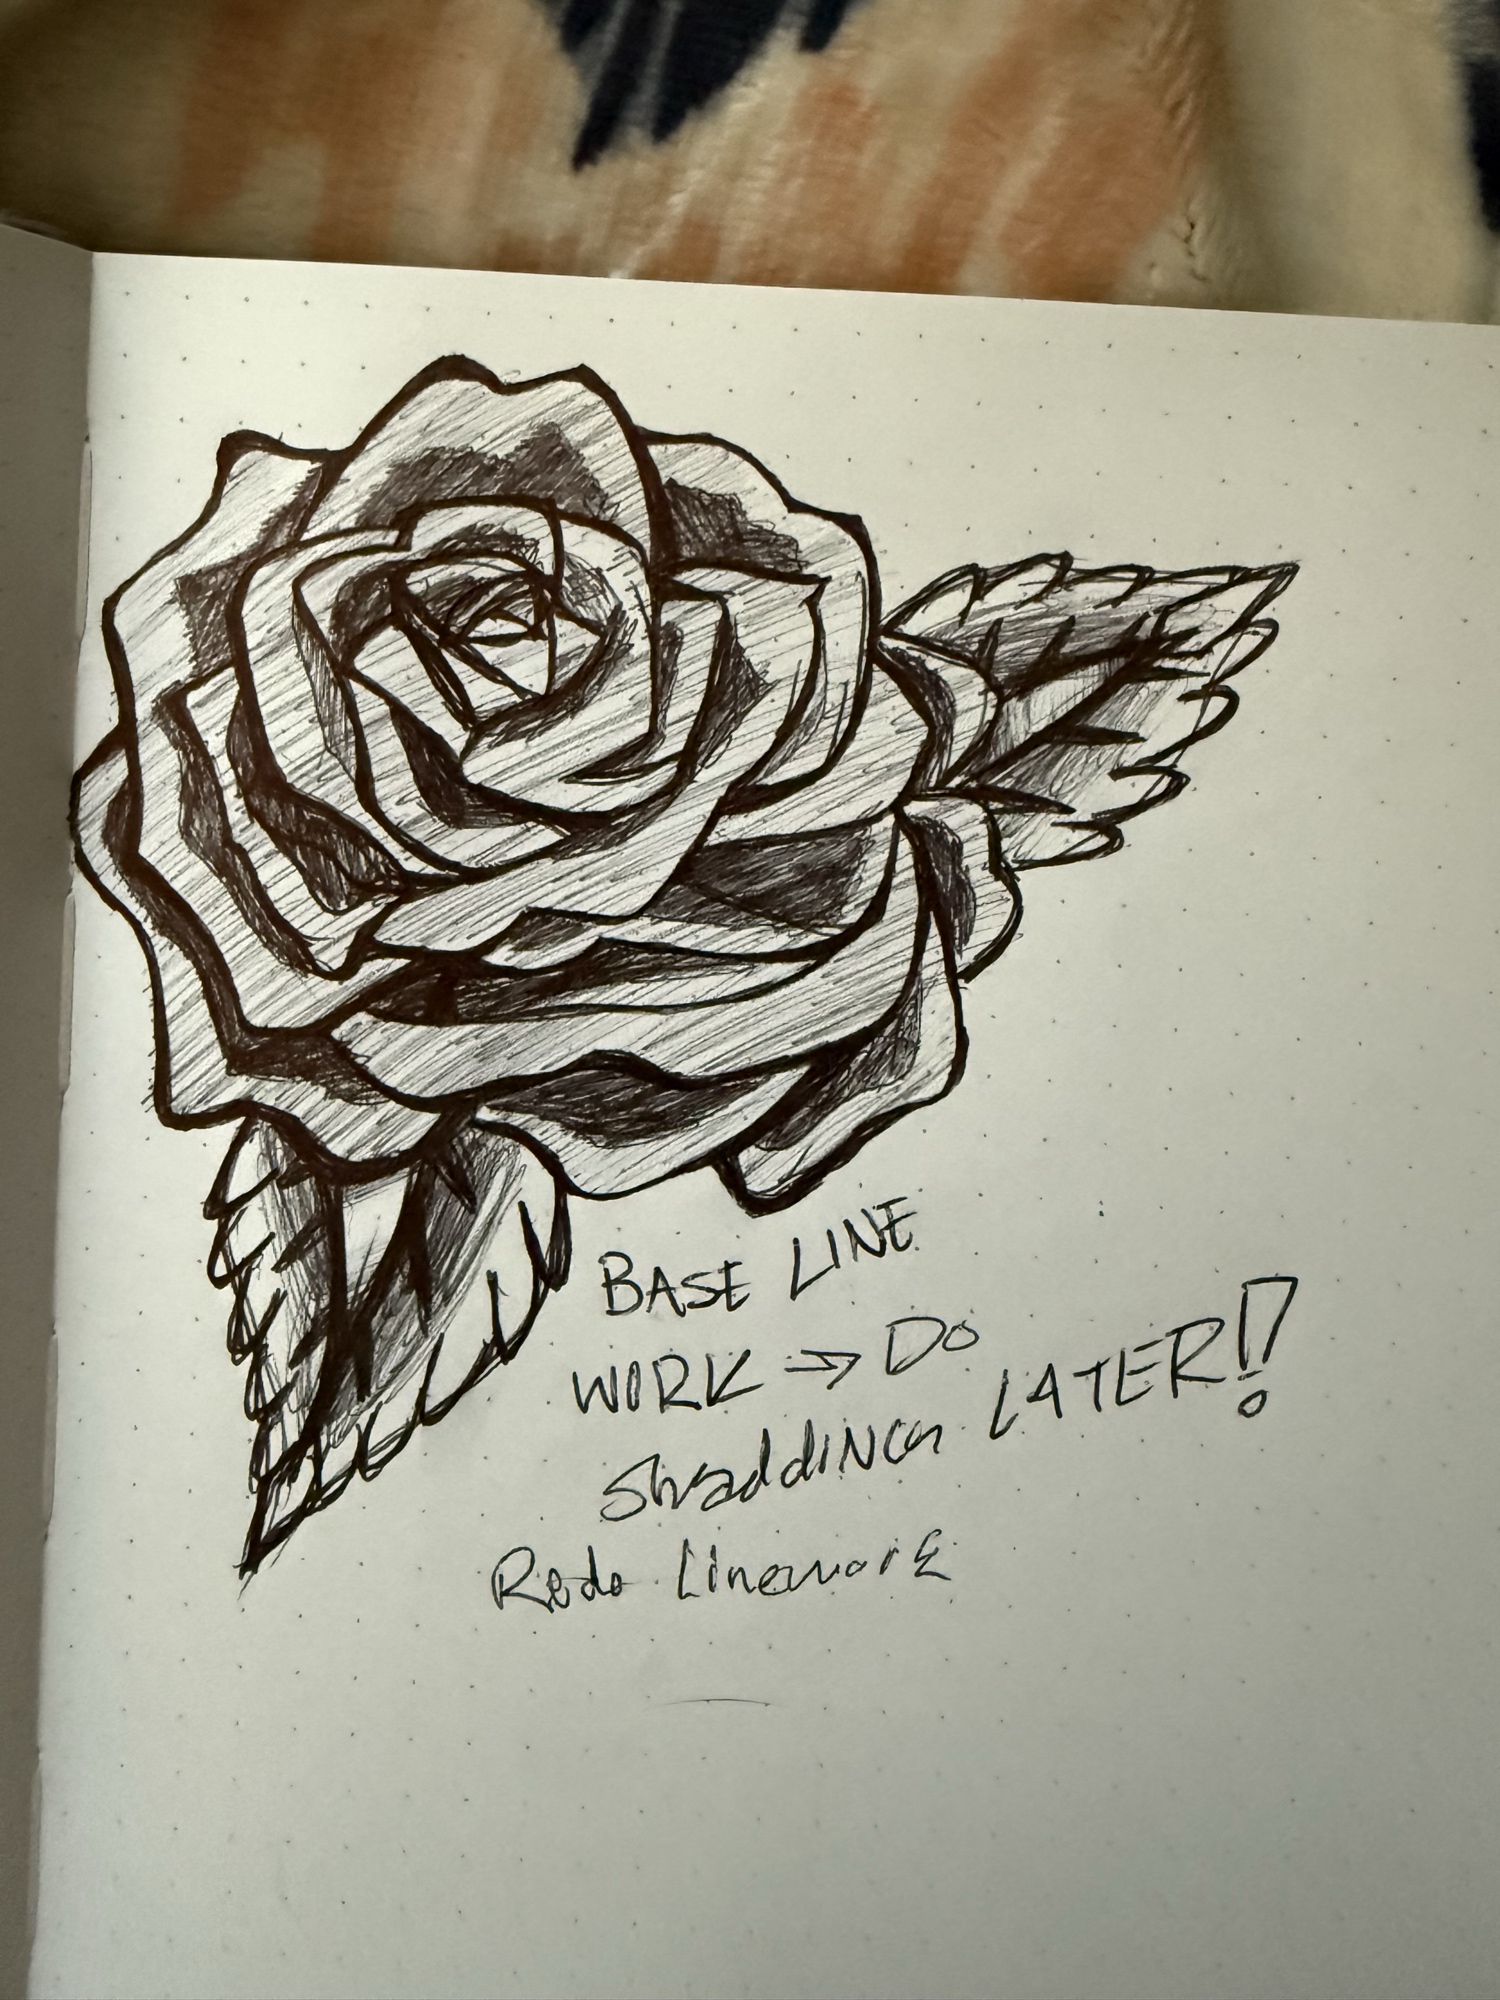 BASE LINE
WORK → DO
ShaddiNG LATER!
Redo Linework